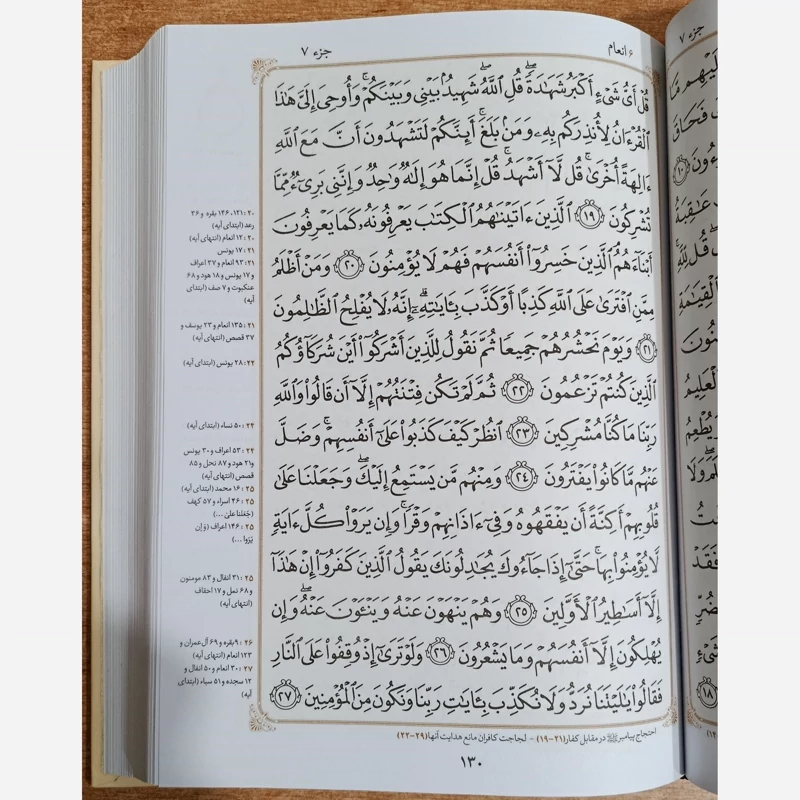 جزء ۷
۶ انعام
قُلْ أَيُّ شَيْءٍ أَكْبَرُ شَهَادَةً ۖ قُلِ اللَّهُ ۖ شَهِيدٌ بَيْنِي وَبَيْنَكُمْ ۚ وَأُوحِيَ إِلَيَّ هَٰذَا
الْقُرْءَانُ لِأُنْذِرَكُمْ بِهِ وَمَنْ بَلَغَ ۚ أَئِنَّكُمْ لَتَشْهَدُونَ أَنَّ مَعَ اللَّهِ
ءَالِهَةً أُخْرَىٰ ۚ قُلْ لَا أَشْهَدُ ۚ قُلْ إِنَّمَا هُوَ إِلَٰهٌ وَاحِدٌ وَإِنَّنِي بَرِيءٌ مِمَّا
تُشْرِكُونَ ۱۹ الَّذِينَ ءَاتَيْنَاهُمُ الْكِتَابَ يَعْرِفُونَهُ كَمَا يَعْرِفُونَ
أَبْنَاءَهُمُ الَّذِينَ خَسِرُوا أَنْفُسَهُمْ فَهُمْ لَا يُؤْمِنُونَ ۲۰ وَمَنْ أَظْلَمُ
مِمَّنِ افْتَرَىٰ عَلَى اللَّهِ كَذِبًا أَوْ كَذَّبَ بِـَٔايَاتِهِ ۗ إِنَّهُ لَا يُفْلِحُ الظَّالِمُونَ
۲۱ وَيَوْمَ نَحْشُرُهُمْ جَمِيعًا ثُمَّ نَقُولُ لِلَّذِينَ أَشْرَكُوا أَيْنَ شُرَكَاؤُكُمُ
الَّذِينَ كُنْتُمْ تَزْعُمُونَ ۲۲ ثُمَّ لَمْ تَكُنْ فِتْنَتُهُمْ إِلَّا أَنْ قَالُوا وَاللَّهِ
رَبِّنَا مَا كُنَّا مُشْرِكِينَ ۲۳ انْظُرْ كَيْفَ كَذَبُوا عَلَىٰ أَنْفُسِهِمْ ۚ وَضَلَّ
عَنْهُمْ مَا كَانُوا يَفْتَرُونَ ۲۴ وَمِنْهُمْ مَنْ يَسْتَمِعُ إِلَيْكَ ۖ وَجَعَلْنَا عَلَىٰ
قُلُوبِهِمْ أَكِنَّةً أَنْ يَفْقَهُوهُ وَفِي ءَاذَانِهِمْ وَقْرًا ۚ وَإِنْ يَرَوْا كُلَّ ءَايَةٍ
لَا يُؤْمِنُوا بِهَا ۚ حَتَّىٰ إِذَا جَاءُوكَ يُجَادِلُونَكَ يَقُولُ الَّذِينَ كَفَرُوا إِنْ هَٰذَا
إِلَّا أَسَاطِيرُ الْأَوَّلِينَ ۲۵ وَهُمْ يَنْهَوْنَ عَنْهُ وَيَنْـَٔوْنَ عَنْهُ ۖ وَإِنْ
يُهْلِكُونَ إِلَّا أَنْفُسَهُمْ وَمَا يَشْعُرُونَ ۲۶ وَلَوْ تَرَىٰ إِذْ وُقِفُوا عَلَى النَّارِ
فَقَالُوا يَا لَيْتَنَا نُرَدُّ وَلَا نُكَذِّبَ بِـَٔايَاتِ رَبِّنَا وَنَكُونَ مِنَ الْمُؤْمِنِينَ ۲۷
احتجاج پیامبر ﷺ در مقابل کفار (۲۱-۱۹) - لجاجت کافران مانع هدایت آنها (۲۹-۲۲)
۱۳۰
رعد (ابتدای آیه)
۲۰: ۱۲ انعام (انتهای آیه)
۲۱: ۱۷ یونس
۲۱: ۹۳ انعام و ۳۷ اعراف
و ۱۷ یونس و ۱۸ هود و ۶۸
عنکبوت و ۷ صف (ابتدای
آیه)
۲۱: ۱۳۵ انعام و ۲۳ یوسف و
۳۷ قصص (انتهای آیه)
۲۲: ۲۸ یونس (ابتدای آیه)
۲۴: ۵۰ نساء (ابتدای آیه)
۲۴: ۵۳ اعراف و ۳۰ یونس
و ۲۱ هود و ۸۷ نحل و ۷۵
قصص (انتهای آیه)
۲۵: ۱۶ محمد (ابتدای آیه)
۲۵: ۴۶ اسراء و ۵۷ کهف
(جَعَلنا عَلیٰ ...)
۲۵: ۱۴۶ اعراف (وَ إن
یَرَوا ...)
۲۵: ۳۱ انفال و ۸۳ مومنون
و ۶۸ نمل و ۱۷ احقاف
(انتهای آیه)
۲۶: ۹ بقره و ۶۹ آل عمران و
۱۲۳ انعام (انتهای آیه)
۲۷: ۳۰ انعام و ۵۰ انفال و
۱۲ سجده و ۵۱ سباء (ابتدای
آیه)
جزء ۷